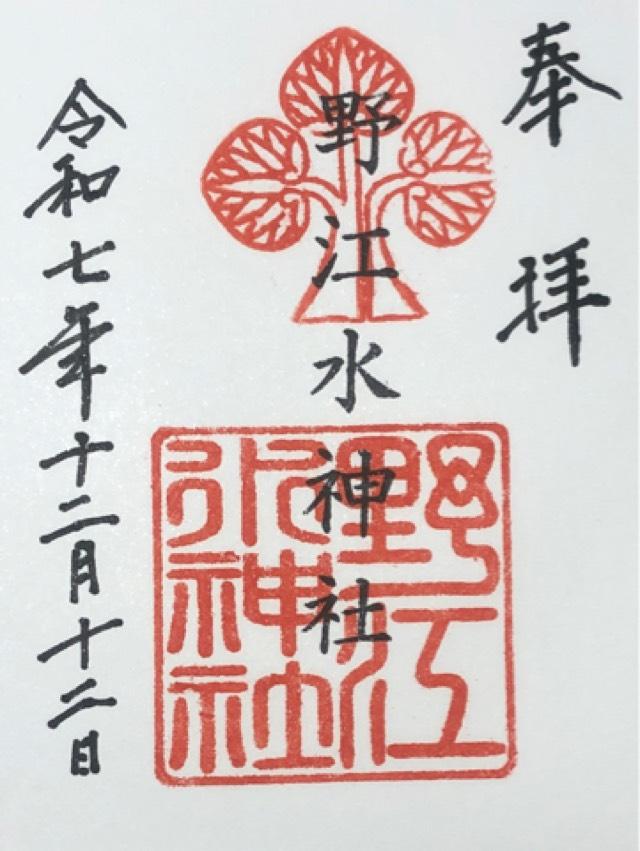 奉拝
野江水神社
野江
水神社
令和七年十二月十二日